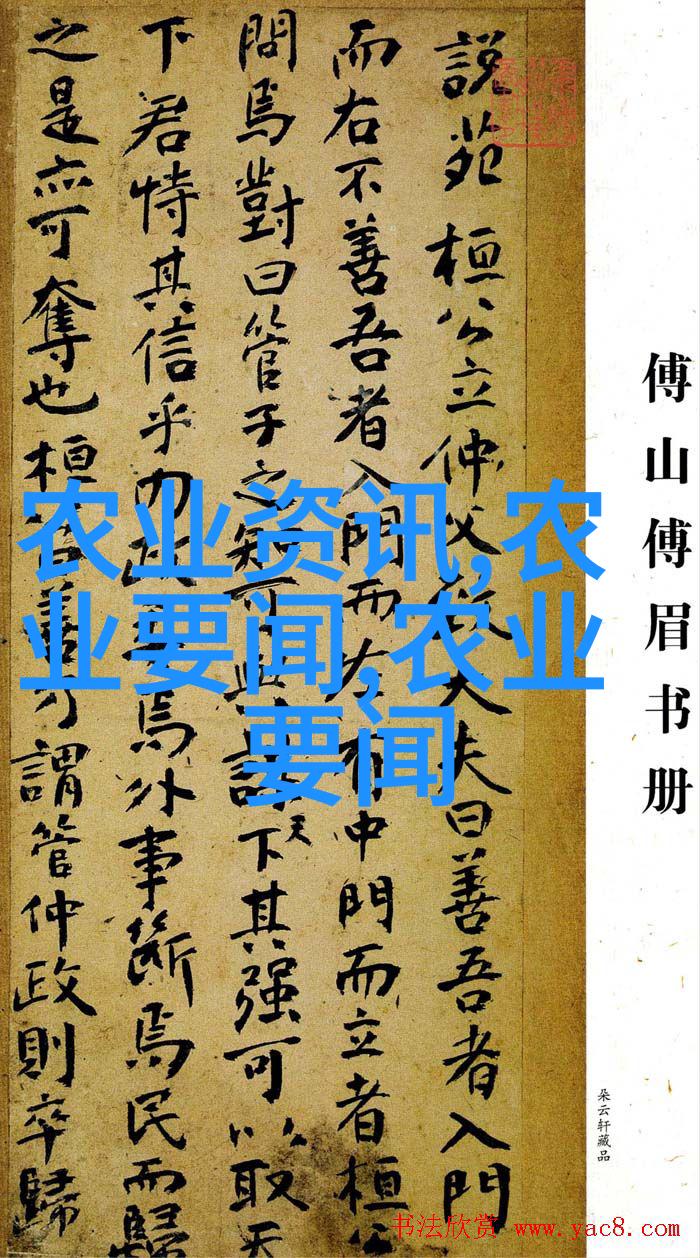 傅山傅眉书册
朵云轩藏品
說苑 桓公立仲父致大夫曰善吾者入門
而右不善吾者入門而左有中門而立者桓公
問焉對曰管子之知可與謀天下其强可以取天
下君恃其信乎內政委焉外事斷焉民而歸
之是亦可奪也桓公曰善乃謂管仲政則卒歸
农业资讯,农
业要闻,农业
要闻
书法欣赏 www.yac8.com